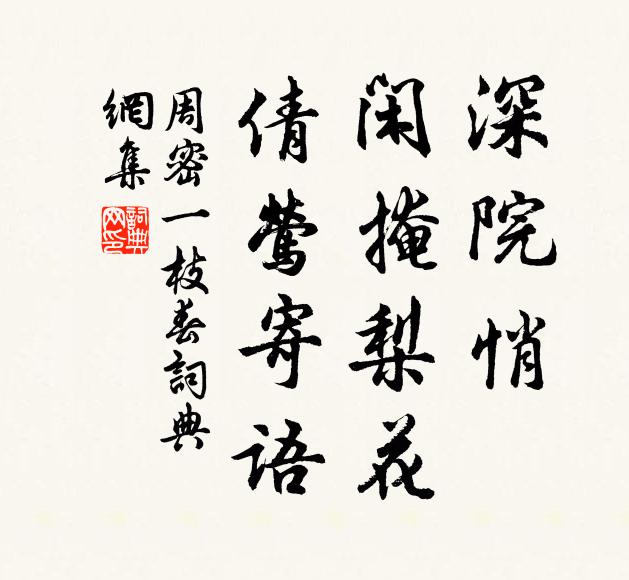 深院悄
閑掩梨花
倩鶯寄語
周密一枝春詞典
網集
詞典网印